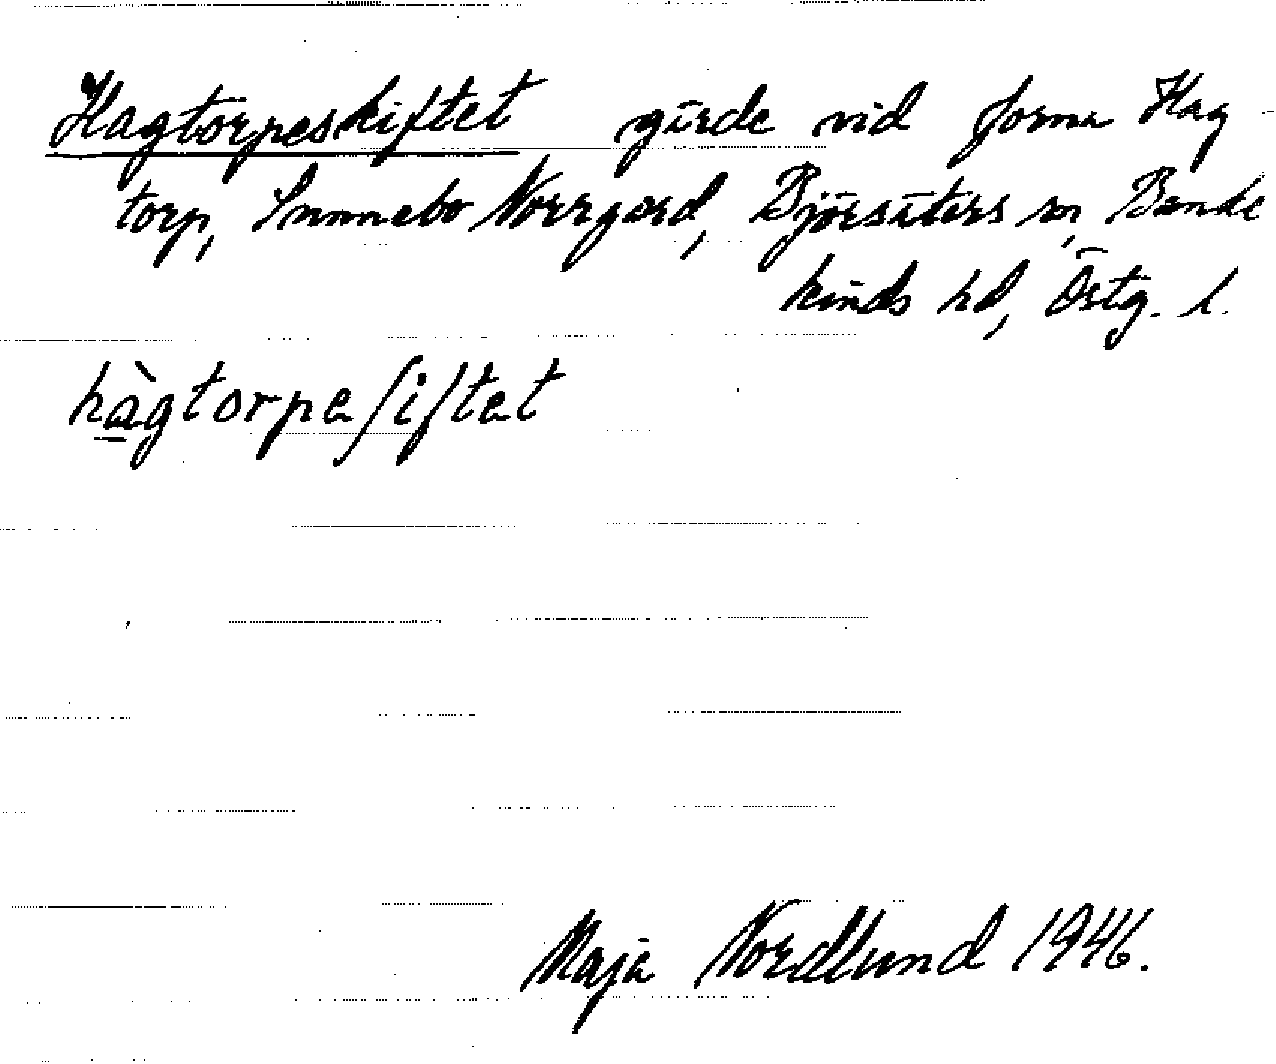 Hagtorpeskiftet gärde vid forna Hag-
torp, Sunnebo Norrgård, Björsäters sn, Banke
kinds hd, Östg. l.
hàgtorpeʃiftet
Maja Nordlund 1946.